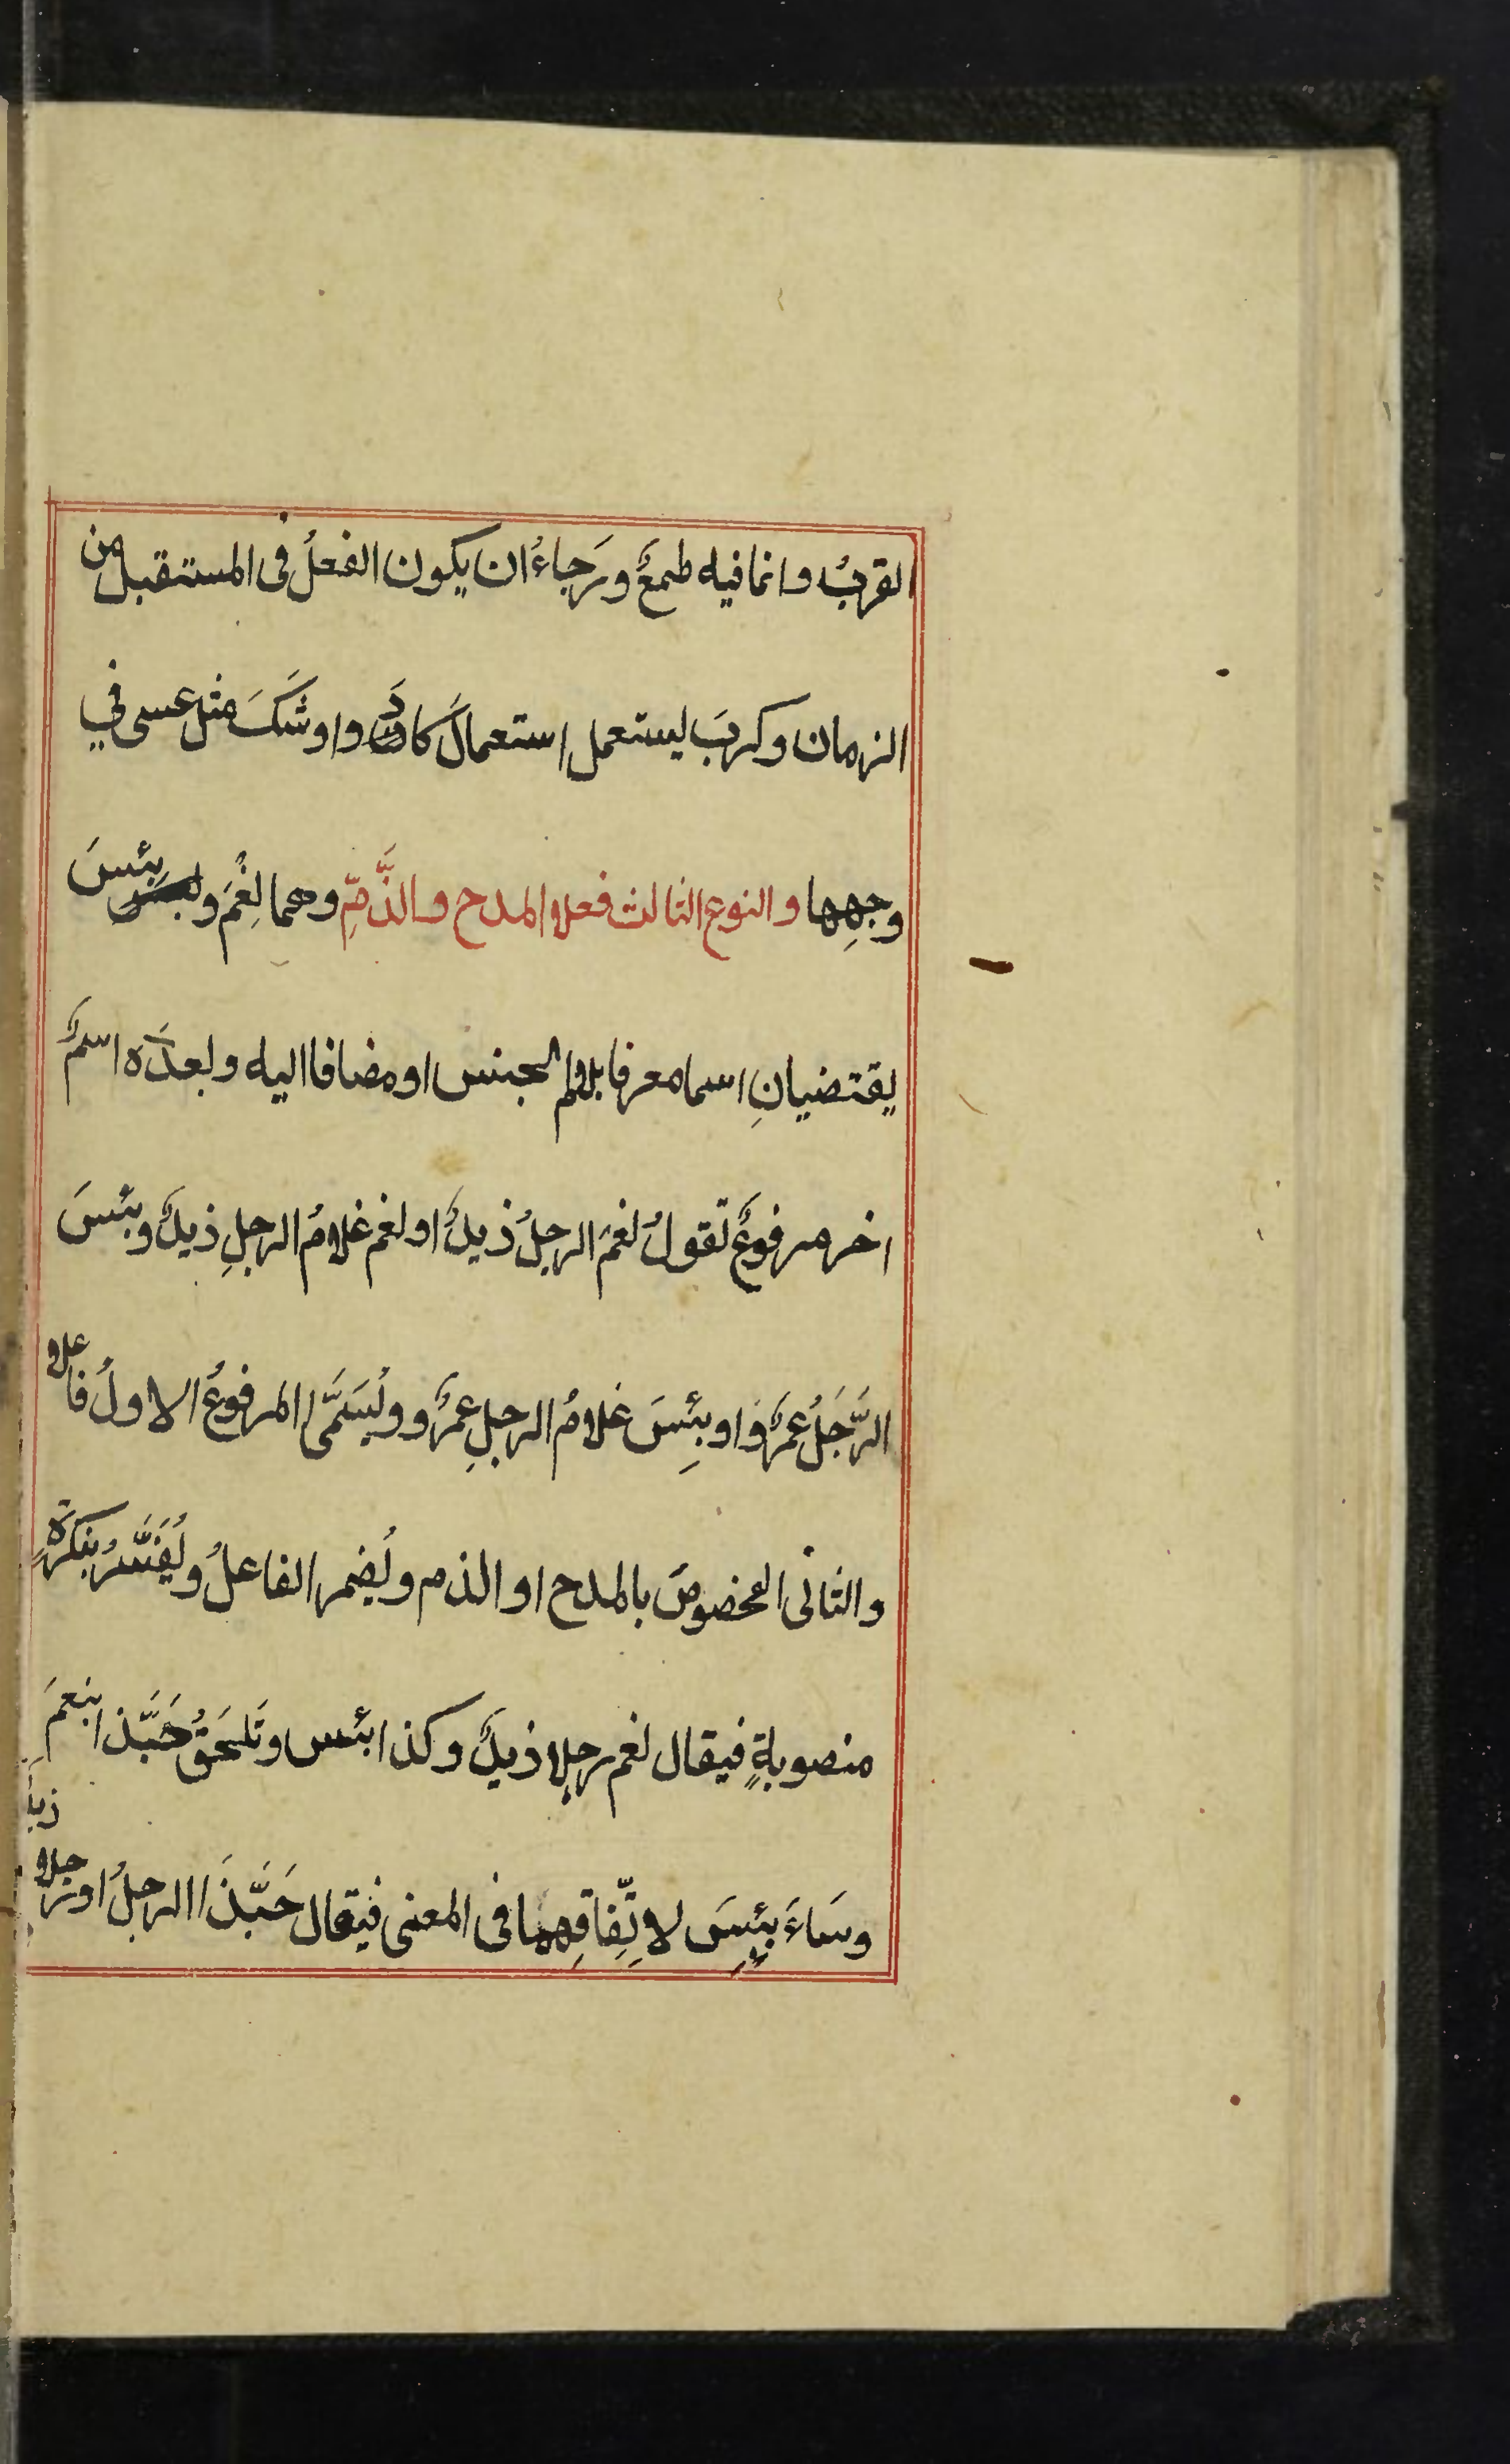 القربُ وانما فيه طمعٌ ورَجاءُ ان يكون الفعلُ فى المستقبل من
الزمان وكربَ يستعمل استعمالَ كادَ واوشَكَ مثل عسى في
وجهِها والنوع الثالث فعلا المدح والذَّمِّ وهما نِعْمَ وبئسَ
يقتضيانِ اسما معرفا بلام الجنس او مضافا اليه وبعدَه اسمٌ
اخر مرفوعٌ تقولُ نعمَ الرجلُ زيدٌ او نعم غلامُ الرجلِ زيدٌ وبئسَ
الرَّجَلُ عمرٌو او بِئسَ غلامُ الرجلِ عمرٌو ويُسَمَّى المرفوعُ الاولُ فاعلا
والثانى المخصوصَ بالمدح او الذم ويُضمر الفاعلُ ويُفَسَّرُ بنكرَةٍ
منصوبةٍ فيقال نعم رجلا زيدٌ وكذا بئس وتَلحَقُ حَبَّذا بنعمَ
وسَاءَ ببِئسَ لاِتِّفاقِهما فى المعنى فيقال حَبَّذَا الرجلُ او رجلا
زيدٌ